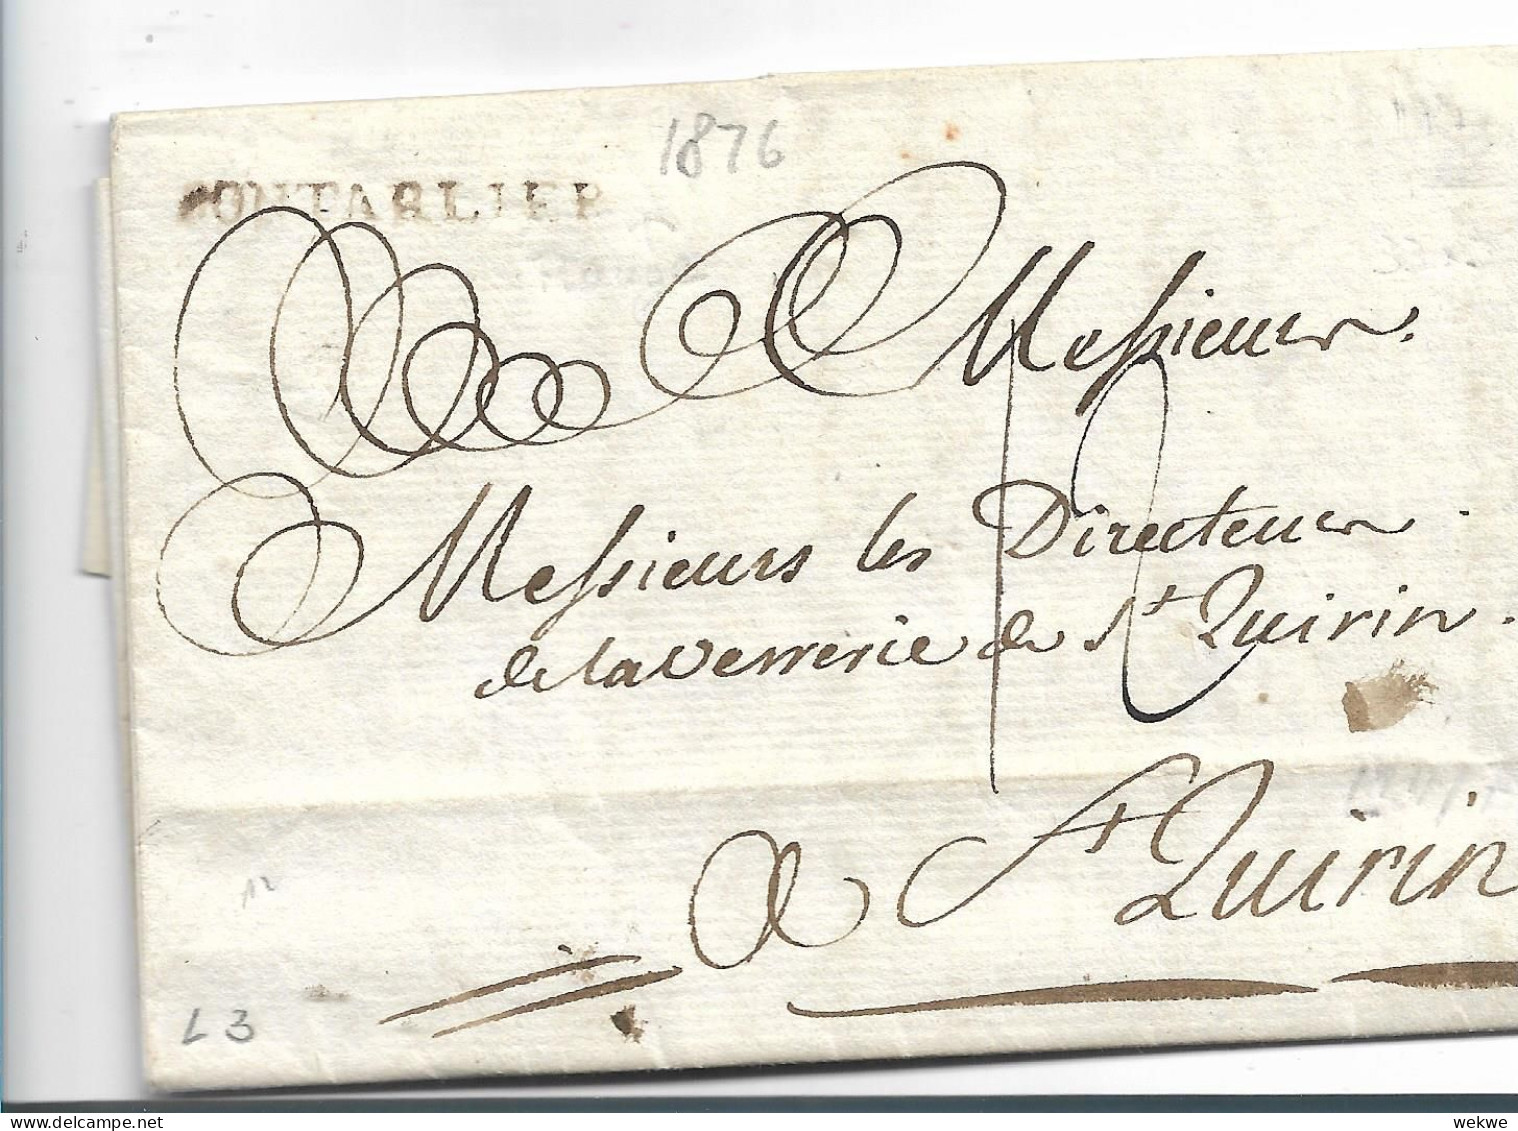 1876
PONTARLIER
Messieurs.
Messieurs les Directeurs
de la verrerie de St Quirin.
a St Quirin
12
L 3
wekwe